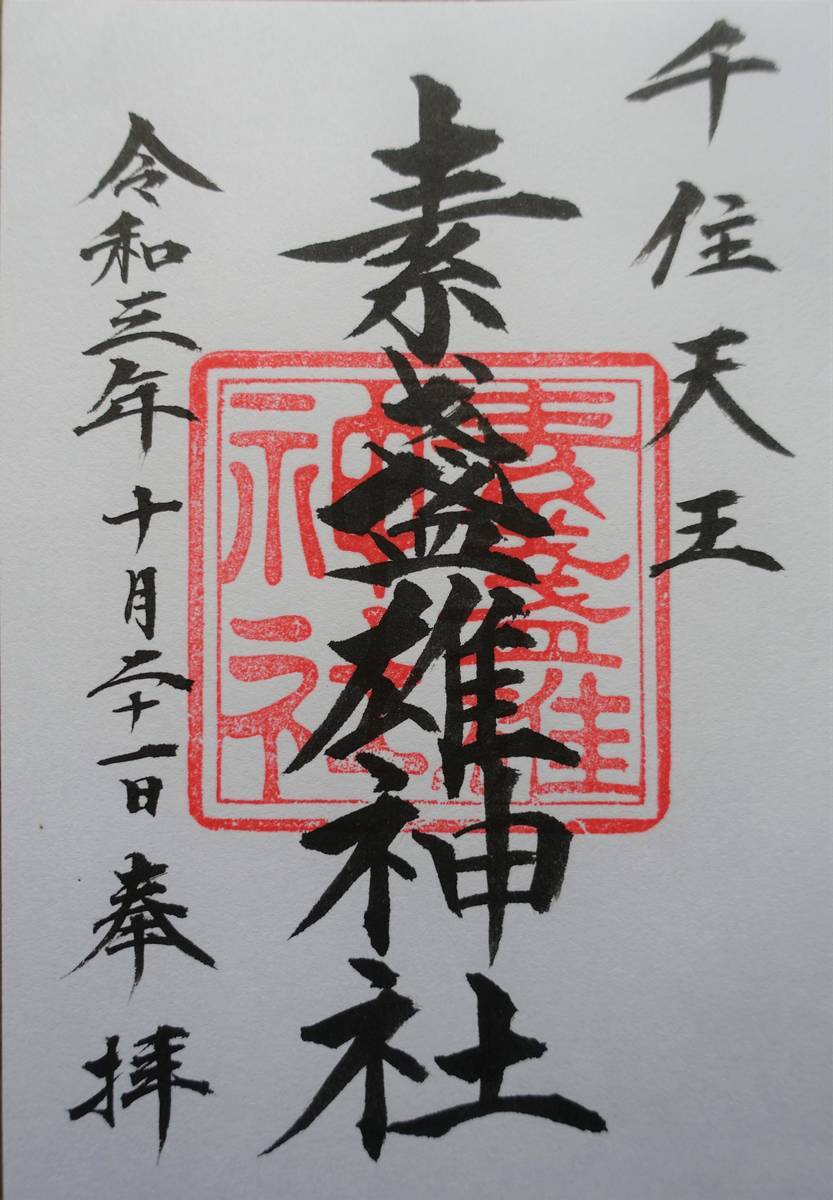 千住天王
素盞雄神社
素盞雄
神社
令和三年十月二十一日奉拝